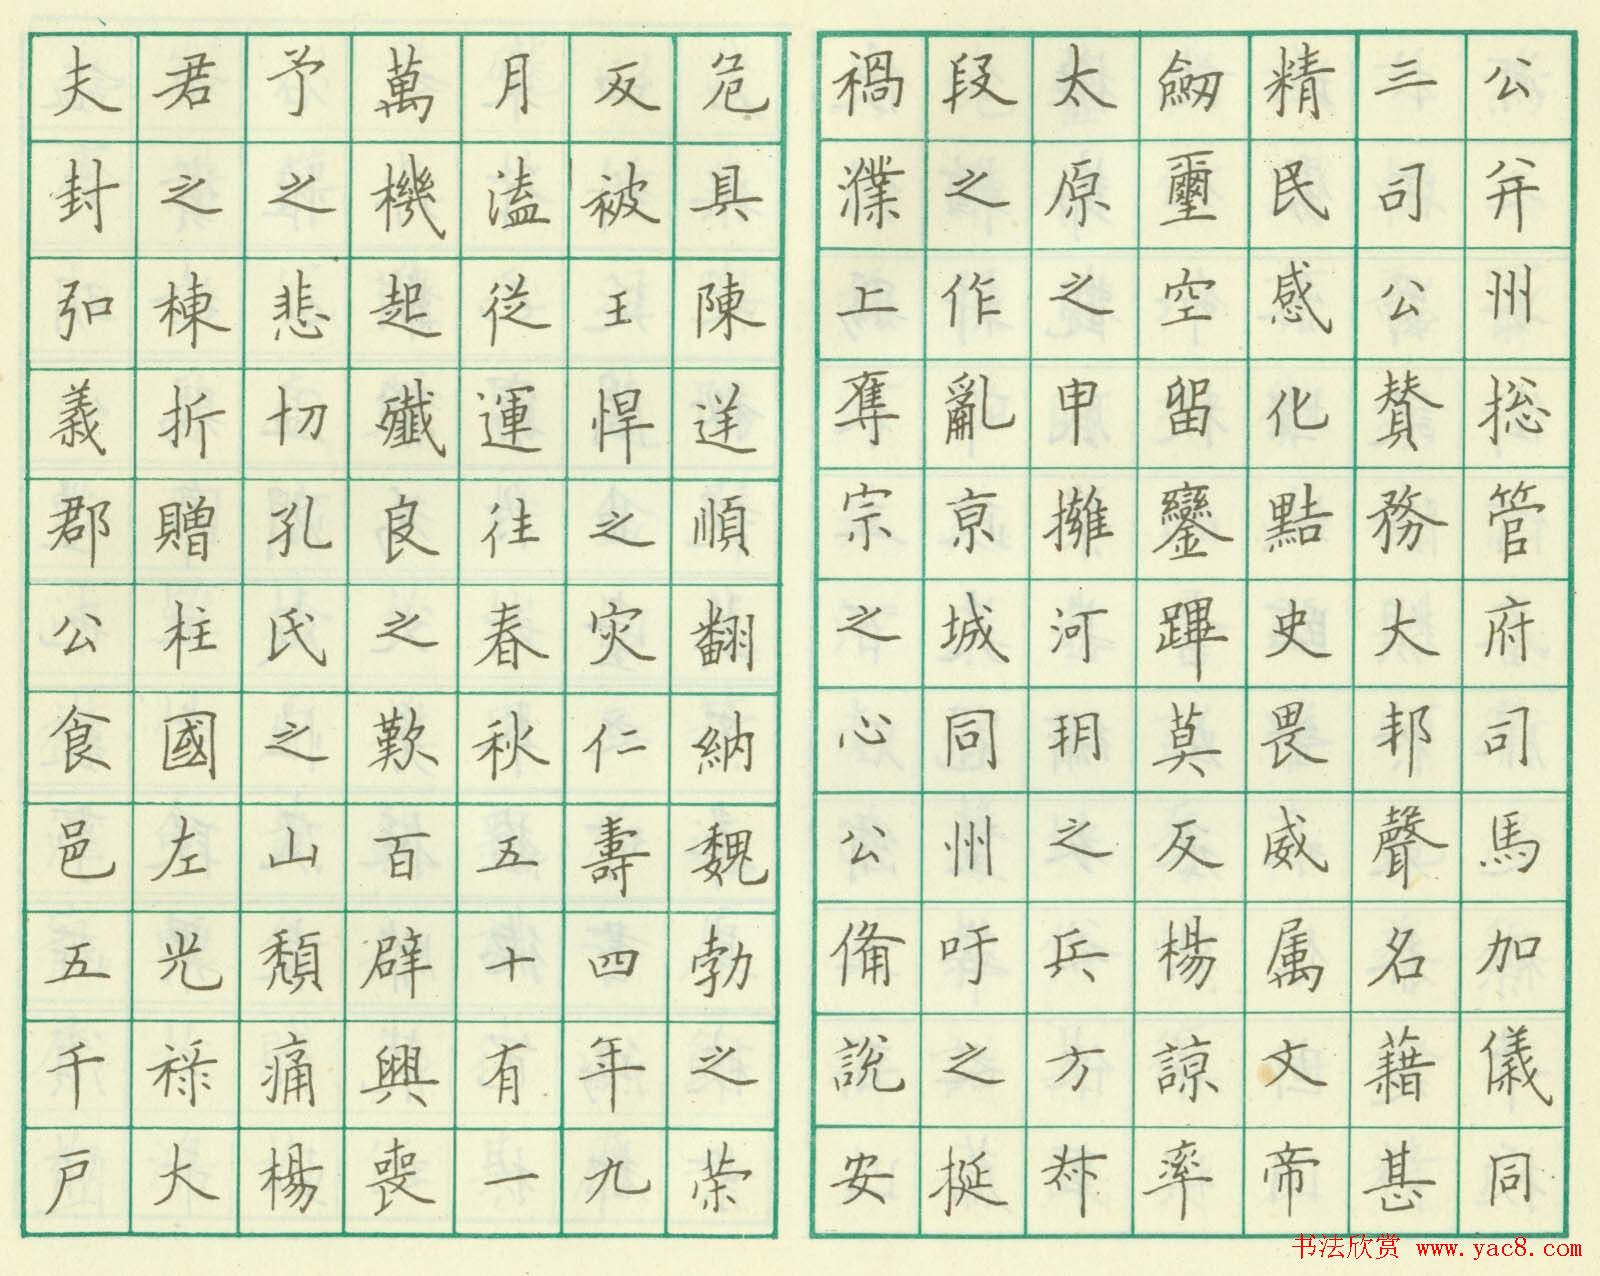 公并州捴管府司馬加儀同
三司公賛務大邦聲名藉甚
精民感化黠史畏威属文帝
劔璽空留鑾蹕莫反楊諒率
太原之申擁河朔之兵方叔
段之作亂京城同州吁之挺
禍濮上奪宗之心公備說安
危具陳逆順翻納魏勃之榮
反被王悍之灾仁壽四年九
月溘從運往春秋五十有一
萬機起殲良之歎百辟興喪
予之悲切孔氏之山頹痛楊
君之棟折贈柱國左光禄大
夫封弘義郡公食邑五千戶
书法欣赏 www.yac8.com